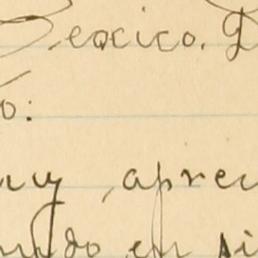 Mexico. D
o:
uy apre
ndo en si